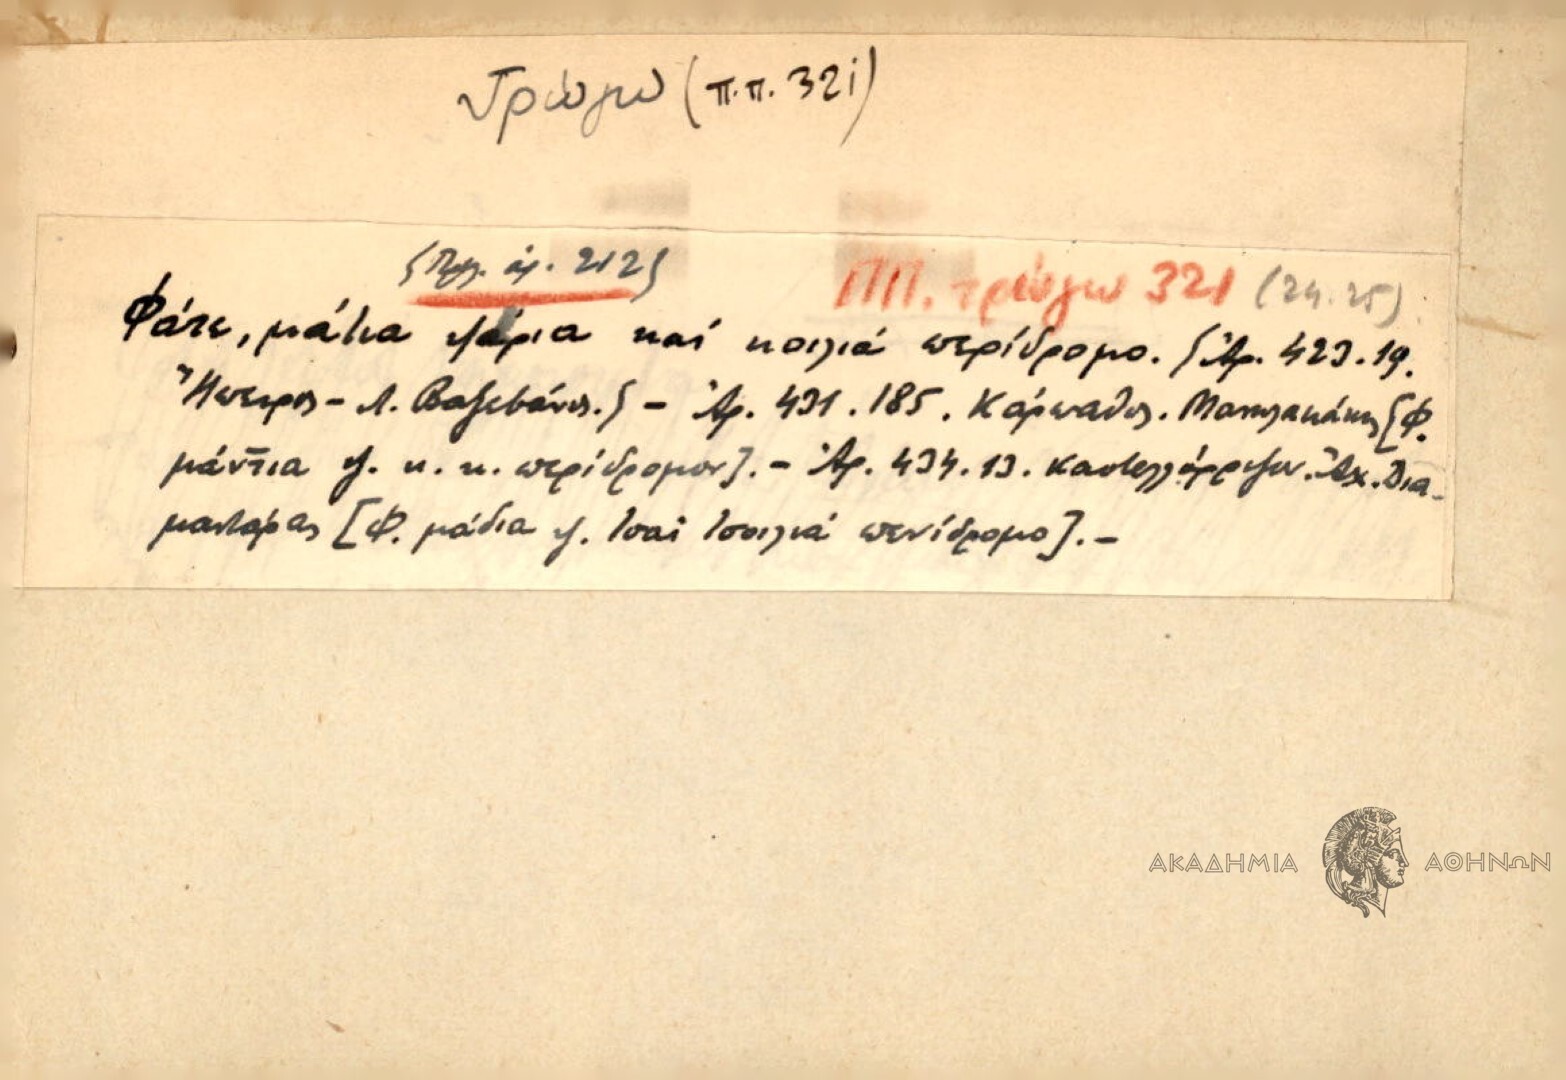 τρώγω (π.π. 321)
[Πρβλ. ἀρ. 212]
ΠΠ. τρώγω 321 (24.25)
Φάτε, μάτια ψάρια καὶ κοιλιά περίδρομο. [Ἀρ. 423.19.
Ἤπειρος - Λ. Βαζεβάνος.] - Ἀρ. 431.185. Κάρπαθος. Μανωλακάκης [Φ.
μάντια ψ. κ. κ. περίδρομον]. - Ἀρ. 434.13. Καστελλόρριζον. Ἀχ. Δια-
μαντάρας [Φ. μάδια ψ. τσαὶ τσοιλιά πενίδρομο]. -
ΑΚΑΔΗΜΙΑ ΑΘΗΝΩΝ